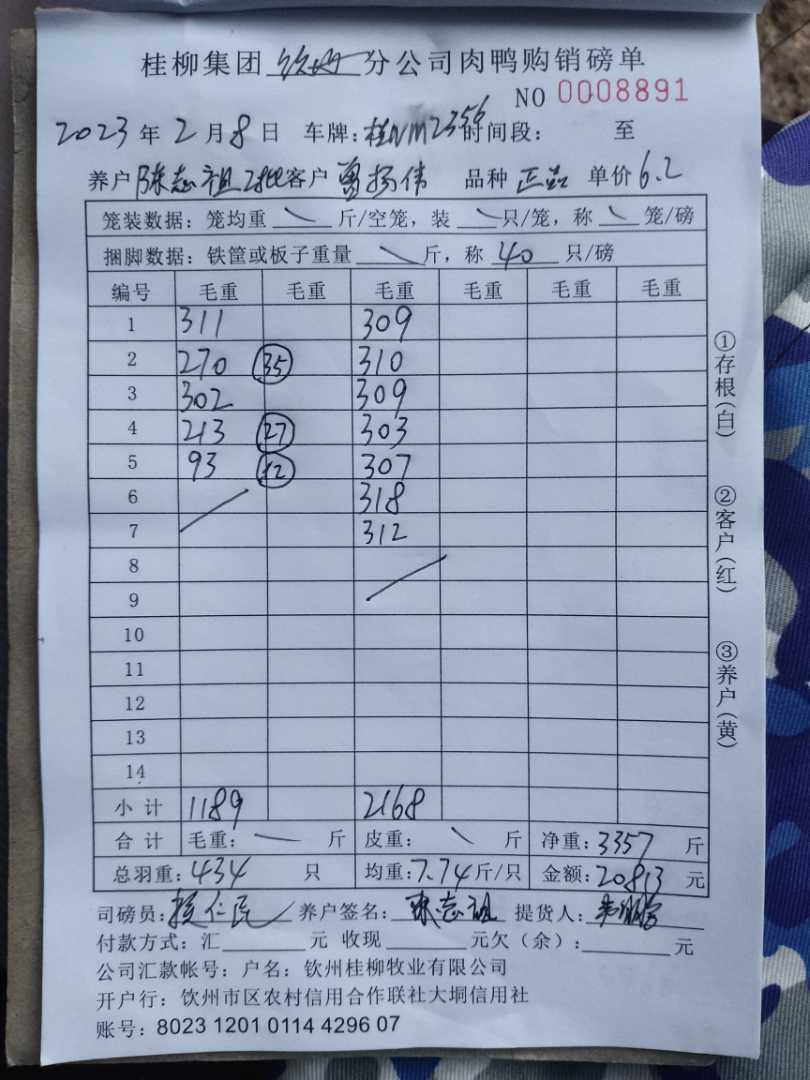 桂柳集团 钦州 分公司肉鸭购销磅单
NO 0008891
2023 年 2 月 8 日 车牌: 桂NM2356 时间段: 至
养户 陈志祖2批 客户 曾扬伟 品种 正品 单价 6.2
笼装数据: 笼均重 \ 斤/空笼, 装 \ 只/笼, 称 \ 笼/磅
捆脚数据: 铁筐或板子重量 \ 斤, 称 40 只/磅
编号 毛重 毛重 毛重 毛重 毛重 毛重
1 311 309
2 270 35 310
3 302 309
4 213 27 303
5 93 12 307
6 318
7 312
8
9
10
11
12
13
14
小计 1189 2168
合计 毛重: — 斤 皮重: \ 斤 净重: 3357 斤
总羽重: 434 只 均重: 7.74 斤/只 金额: 20813 元
司磅员: 养户签名: 陈志祖 提货人:
付款方式: 汇 元 收现 元欠(余): 元
公司汇款帐号: 户名: 钦州桂柳牧业有限公司
开户行: 钦州市区农村信用合作联社大垌信用社
账号: 8023 1201 0114 4296 07
①存根(白)
②客户(红)
③养户(黄)